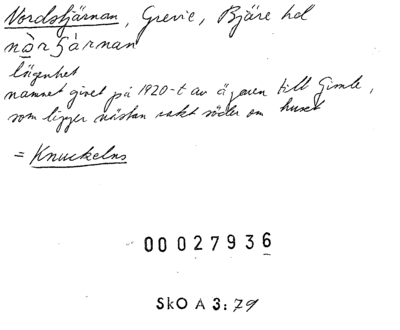 Nordstjärnan, Grevie, Bjäre hd
nò̱rʃàrnan
lägenhet
namnet givet på 1920-t av ägaren till Gimle,
som ligger nästan rakt söder om huset
= Knuckelns
00 027936
SkO A 3: 79